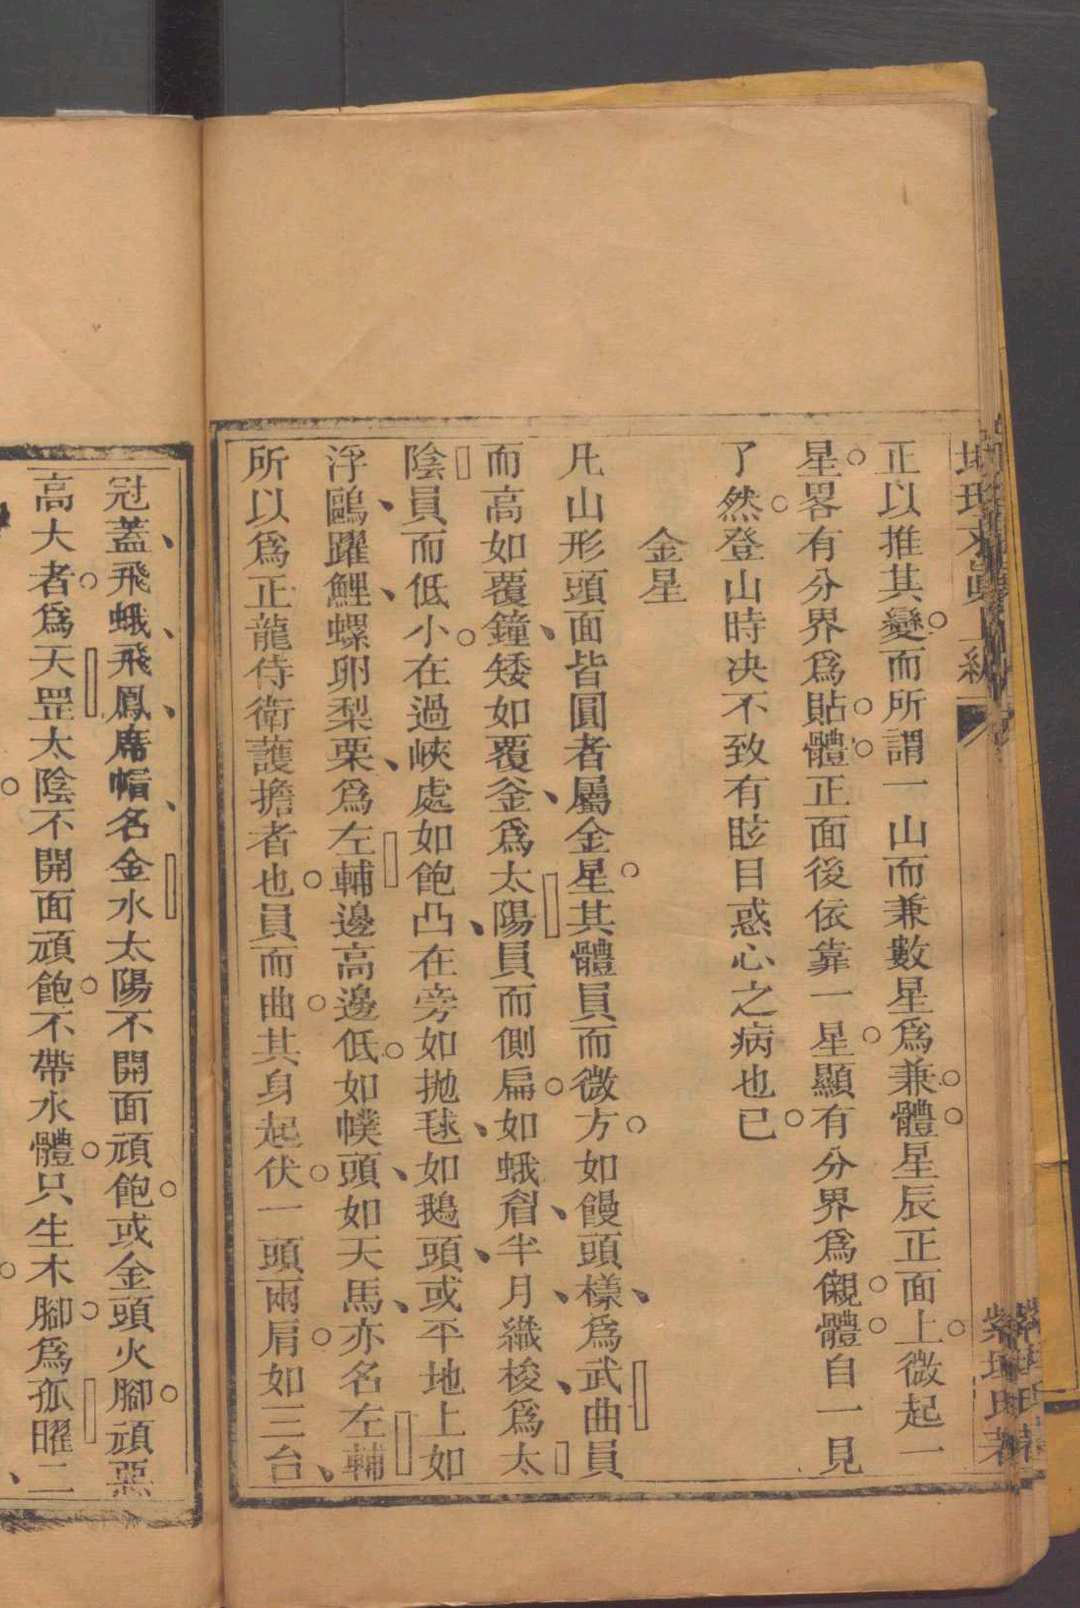 正以推其變而所謂一山而兼數星爲兼體星辰正面上微起一
星畧有分界爲貼體正面後依靠一星顯有分界爲儭體自一見
了然登山時决不致有眩目惑心之病也已
金星
凡山形頭面皆圓者屬金星其體員而微方如饅頭樣爲武曲員
而高如覆鐘矮如覆釜爲太陽員而側扁如蛾眉半月織梭爲太
陰員而低小在過峽處如飽凸在旁如拋毬如鵝頭或平地上如
浮鷗躍鯉螺卵梨栗爲左輔邊高邊低如幞頭如天馬亦名左輔
所以爲正龍侍衛護擔者也員而曲其身起伏一頭兩肩如三台
冠蓋飛蛾飛鳳席帽名金水太陽不開面頑飽或金頭火腳頑惡
高大者爲天罡太陰不開面頑飽不帶水體只生木腳爲孤曜二